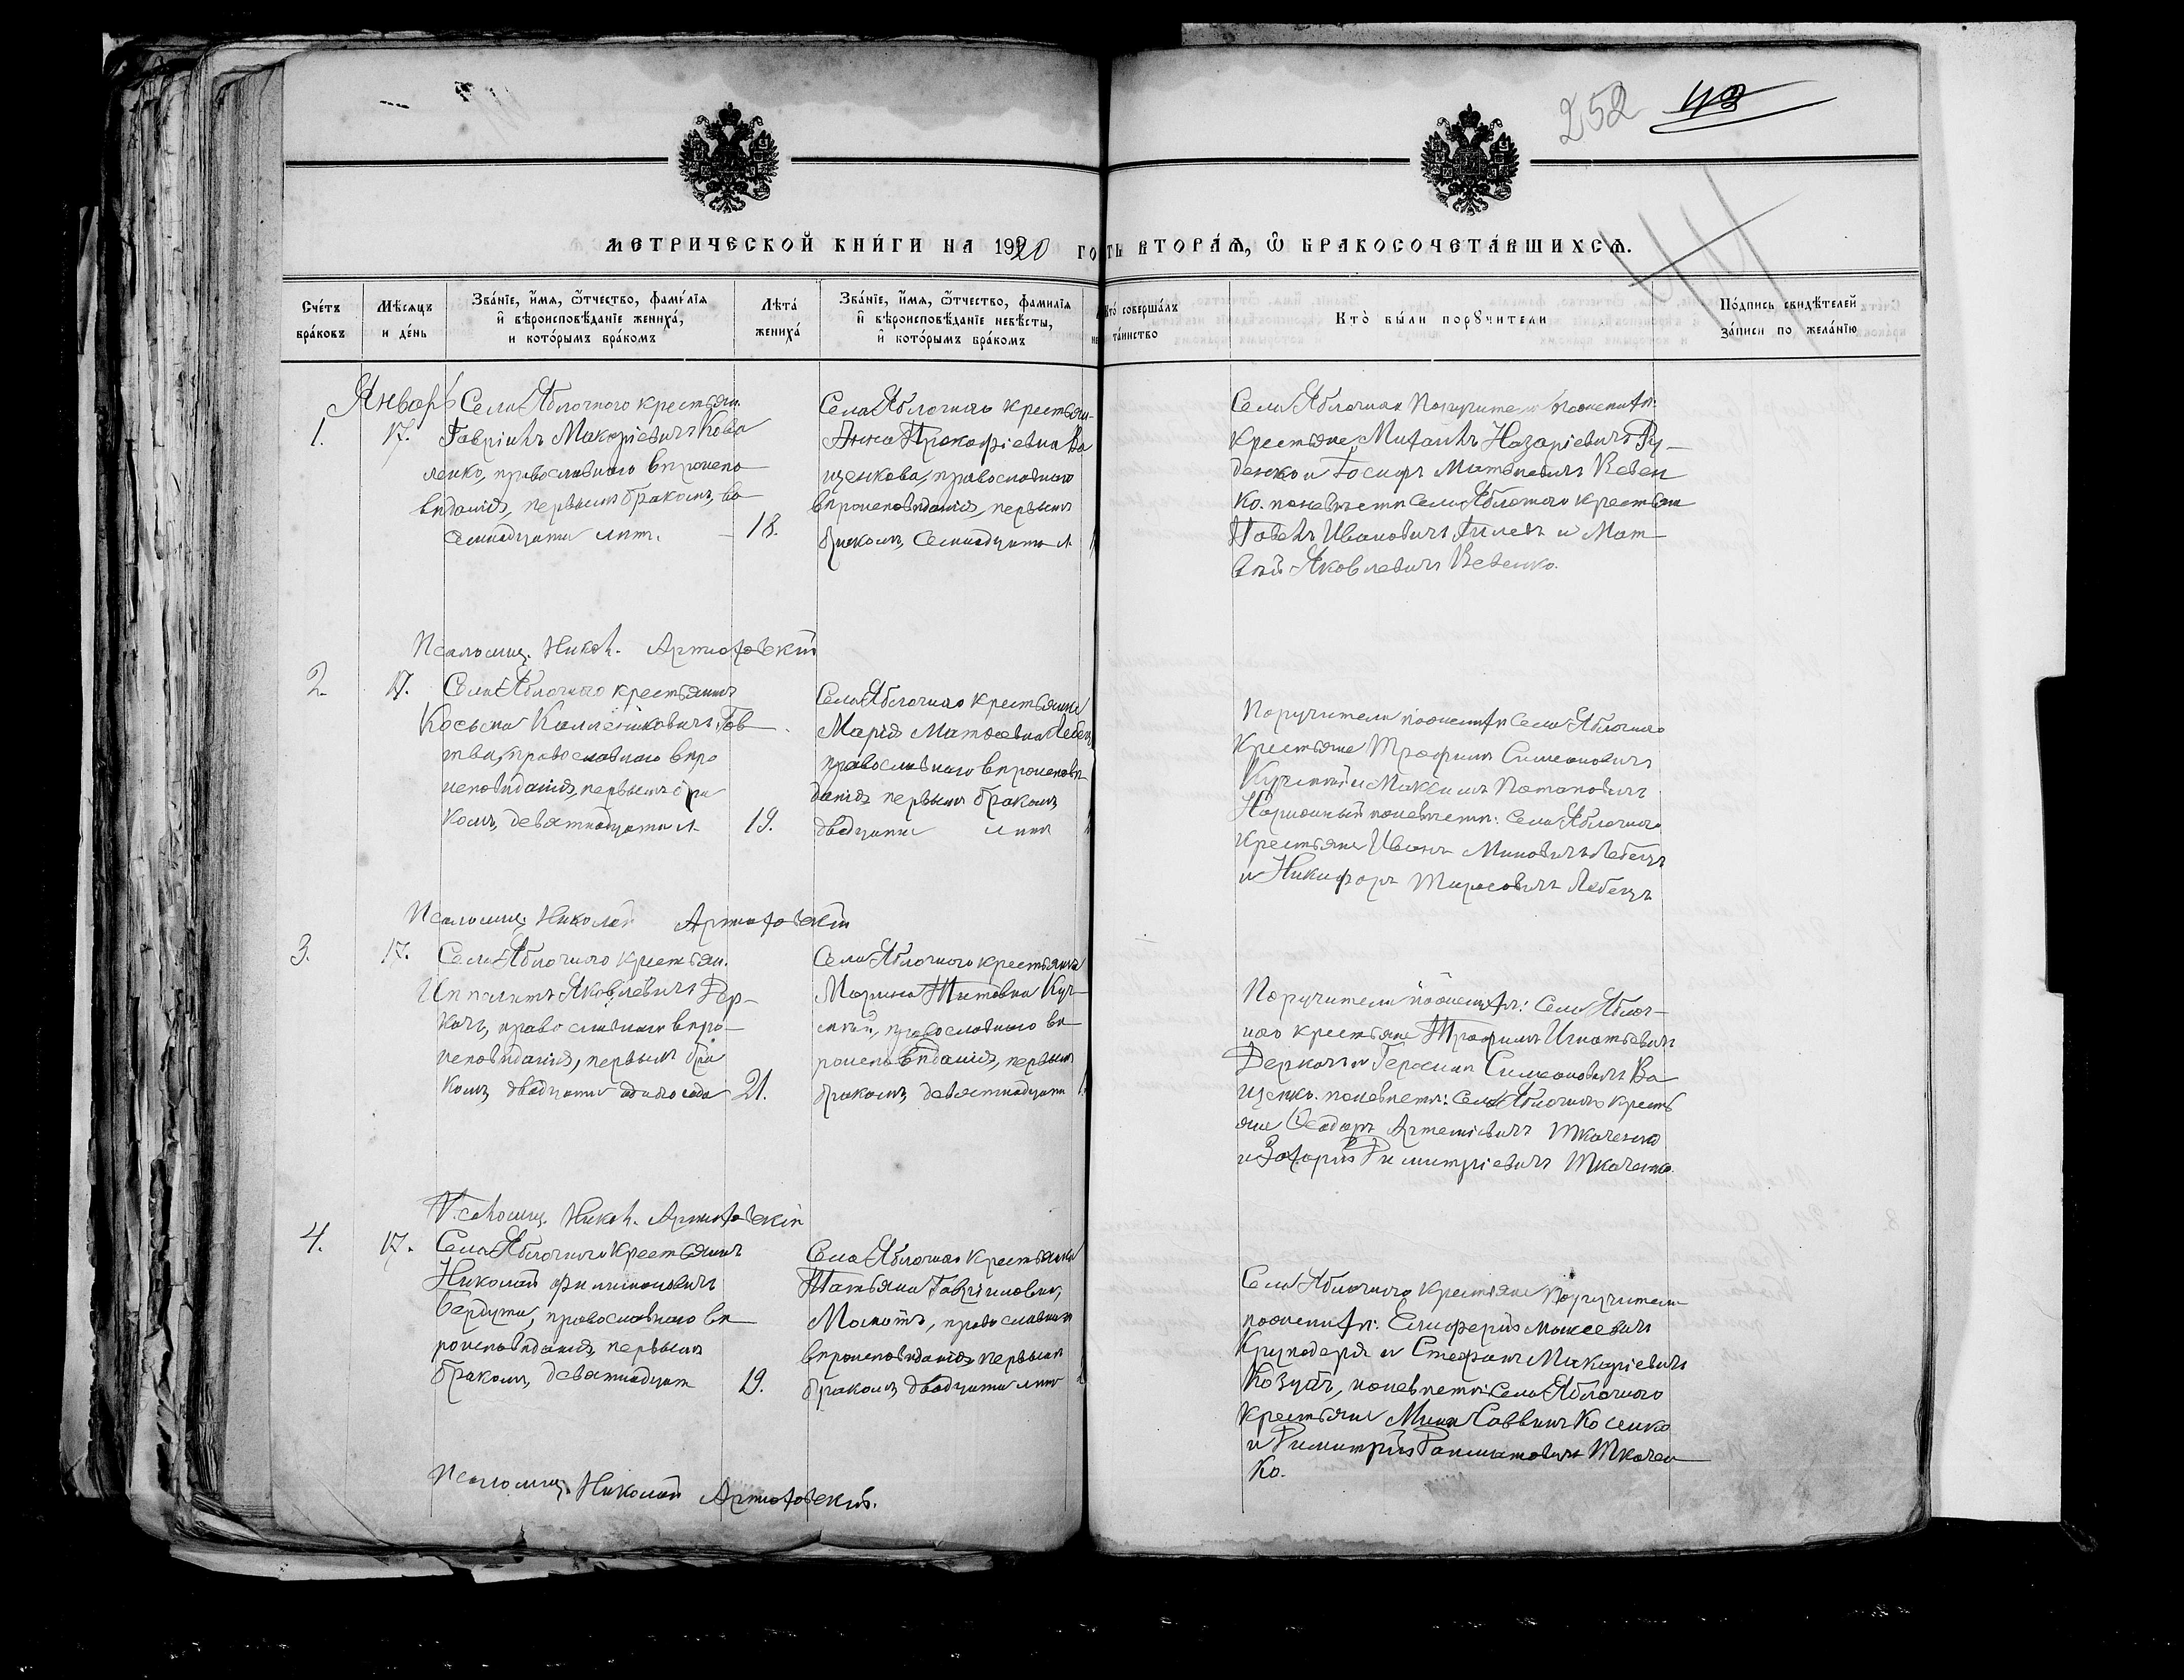 252 113
МЕТРИЧЕСКОЙ КНИГИ НА 1920 ГО
ТЬ ВТОРАѦ, Ѡ БРАКОСОЧЕТАВШИХСѦ.
Счетъ браковъ
Мѣсяцъ и день
Званіе, имя, ѿчество, фамилія и вѣроисповѣданіе жениха, и которымъ бракомъ
Лѣта жениха
Званіе, имя, ѿчество, фамилія и вѣроисповѣданіе невѣсты, и которымъ бракомъ
Кто совершалъ таинство
Кто были поручители
Подпись свидѣтелей записи по желанію
Январь
1.
17.
Села Яблочного крестьян.
Гавріилъ Макаріевичъ Кова
ленко, православнаго вѣроиспо
вѣданія, первымъ бракомъ, во
семнадцати лѣтъ.
18.
Села Яблочного крестьян
Анна Прокофіевна Ва
щенкова, православнаго
вѣроисповѣданія, первымъ
бракомъ, семнадцати л
Села Яблочнаго Поручители по жених.
крестьяне Михаилъ Назаріевичъ Ру-
денко и Іосифъ Матвѣевичъ Вевен
ко. по невѣстѣ села Яблочного крестьян
Павелъ Ивановичъ Гилевъ и Мат
вѣй Яковлевичъ Вевенко.
Псаломщ. Никол. Артюховскій
2.
17.
Села Яблочнаго крестьянинъ
Косьма Каллениковичъ Гов
тва, православнаго вѣро
исповѣданія, первымъ бра
комъ, девятнадцати л.
19.
Села Яблочнаго крестьянка
Марія Матвеевна Лебец
православнаго вѣроисповѣ
данія первымъ бракомъ,
двадцати лѣтъ
Поручители по женихѣ Села Яблочнаго
крестьяне Трофимъ Симеоновичъ
и Максимъ Потаповичъ
по невѣстѣ: Села Яблочнаго
крестьяне Иванъ Миновичъ Лебецъ
и Никифоръ Тарасовичъ Лебецъ
Псаломщ. Николай Артюховскій
3.
17.
Села Яблочного крестьян.
Ипполитъ Яковлевичъ Дер-
качъ, православнаго вѣро-
исповѣданія, первымъ бра
комъ, двадцати одного года
21.
Села Яблочного крестьянка
Марина Титовна Куч-
православнаго вѣ-
роисповѣданія, первымъ
бракомъ, девятнадцати
Поручители по женихѣ: Села Яблоч-
наго крестьяне Трофимъ Игнатьевичъ
Деркачъ и Герасимъ Симеоновичъ Ва
щенко. по невѣстѣ: Села Яблочнаго кресть
яне Ѳеодоръ Артеміевичъ Ткаченко
и Захарій Димитріевичъ Ткаченко.
Псаломщ. Никол. Артюховскій
4.
17.
Села Яблочного крестьянинъ
Николай Филимоновичъ
Бердута, православнаго вѣ
роисповѣданія, первымъ
бракомъ, девятнадцат
19.
Села Яблочнаго крестьянка
Татьяна Гавріиловна,
православнаго
вѣроисповѣданія, первымъ
бракомъ, двадцати лѣтъ
Села Яблочного крестьяне Поручители
по женихѣ: Елиферій Моисеевичъ
Круподеря и Стефанъ Макаріевичъ
Козубъ, по невѣстѣ: Села Яблочного
крестьяне Мина Саввичъ Косенко
и Димитрій Ткачен
ко.
Псаломщ. Николай Артюховскій.